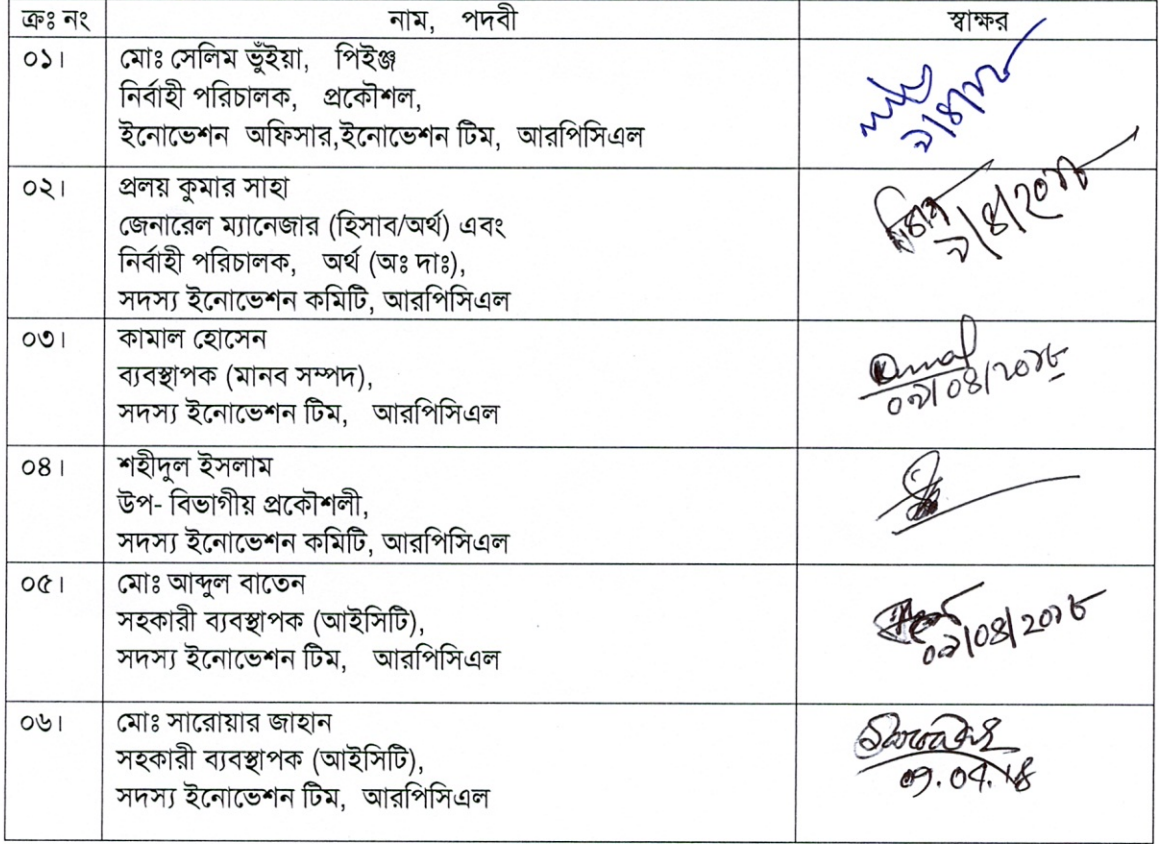 ক্রঃ নং নাম, পদবী স্বাক্ষর
০১। মোঃ সেলিম ভূঁইয়া, পিইঞ্জ
নির্বাহী পরিচালক, প্রকৌশল,
ইনোভেশন অফিসার,ইনোভেশন টিম, আরপিসিএল
৯/৪/১৮
০২। প্রলয় কুমার সাহা
জেনারেল ম্যানেজার (হিসাব/অর্থ) এবং
নির্বাহী পরিচালক, অর্থ (অঃ দাঃ),
সদস্য ইনোভেশন কমিটি, আরপিসিএল
৯/৪/২০১৮
০৩। কামাল হোসেন
ব্যবস্থাপক (মানব সম্পদ),
সদস্য ইনোভেশন টিম, আরপিসিএল
০৯/০৪/২০১৮
০৪। শহীদুল ইসলাম
উপ- বিভাগীয় প্রকৌশলী,
সদস্য ইনোভেশন কমিটি, আরপিসিএল
০৫। মোঃ আব্দুল বাতেন
সহকারী ব্যবস্থাপক (আইসিটি),
সদস্য ইনোভেশন টিম, আরপিসিএল
০৯/০৪/২০১৮
০৬। মোঃ সারোয়ার জাহান
সহকারী ব্যবস্থাপক (আইসিটি),
সদস্য ইনোভেশন টিম, আরপিসিএল
09.04.18